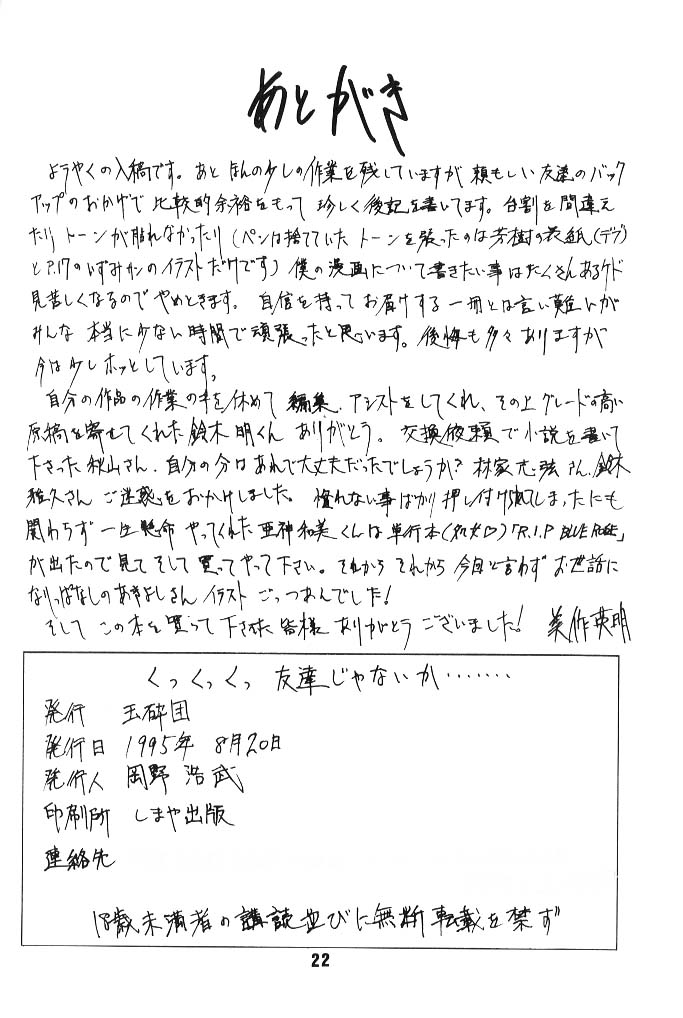 あとがき
ようやくの入稿です。あと ほんの少しの作業を残していますが 頼もしい友達のバック
アップのおかげで 比較的余裕をもって 珍しく後記を書いてます。台割を間違え
たり トーンが貼れなかったり (ペンは捨てていた トーンを張ったのは芳樹の表紙(デブ)
とP.17のいずみかのイラストだけです) 僕の漫画について書きたい事はたくさんあるケド
見苦しくなるので やめときます。 自信を持って お届けする一冊とは言い難いが
みんな 本当に少ない時間で頑張ったと思います。後悔も多々ありますが
今は少しホッとしています。
自分の作品の作業の手を休めて 編集、アシストをしてくれ、その上グレードの高い
原稿を寄せてくれた鈴木明くん ありがとう。 交換依頼で小説を書いて
下さった秋山さん、自分の分はあれで大丈夫だったでしょうか? 林家志弦さん、鈴木
雅久さん ご迷惑をおかけしました。 慣れない事ばかり押し付けられてしまったにも
関わらず 一生懸命 やってくれた 亜神和美くんは 単行本(処女♡)「R.I.P BLUE ROSE」
が出たので見て そして 買ってやって下さい。それから それから 今回と言わず お世話に
なりっぱなしのあきよしさん イラスト ごっつあんでした!
そして この本を買って下された皆様 ありがとうございました! 美作英明
くっくっくっ 友達じゃないか‥‥‥
発行 玉砕団
発行日 1995年 8月20日
発行人 岡野 浩武
印刷所 しまや出版
連絡先
18歳未満者の講読並びに無断転載を禁ず
22